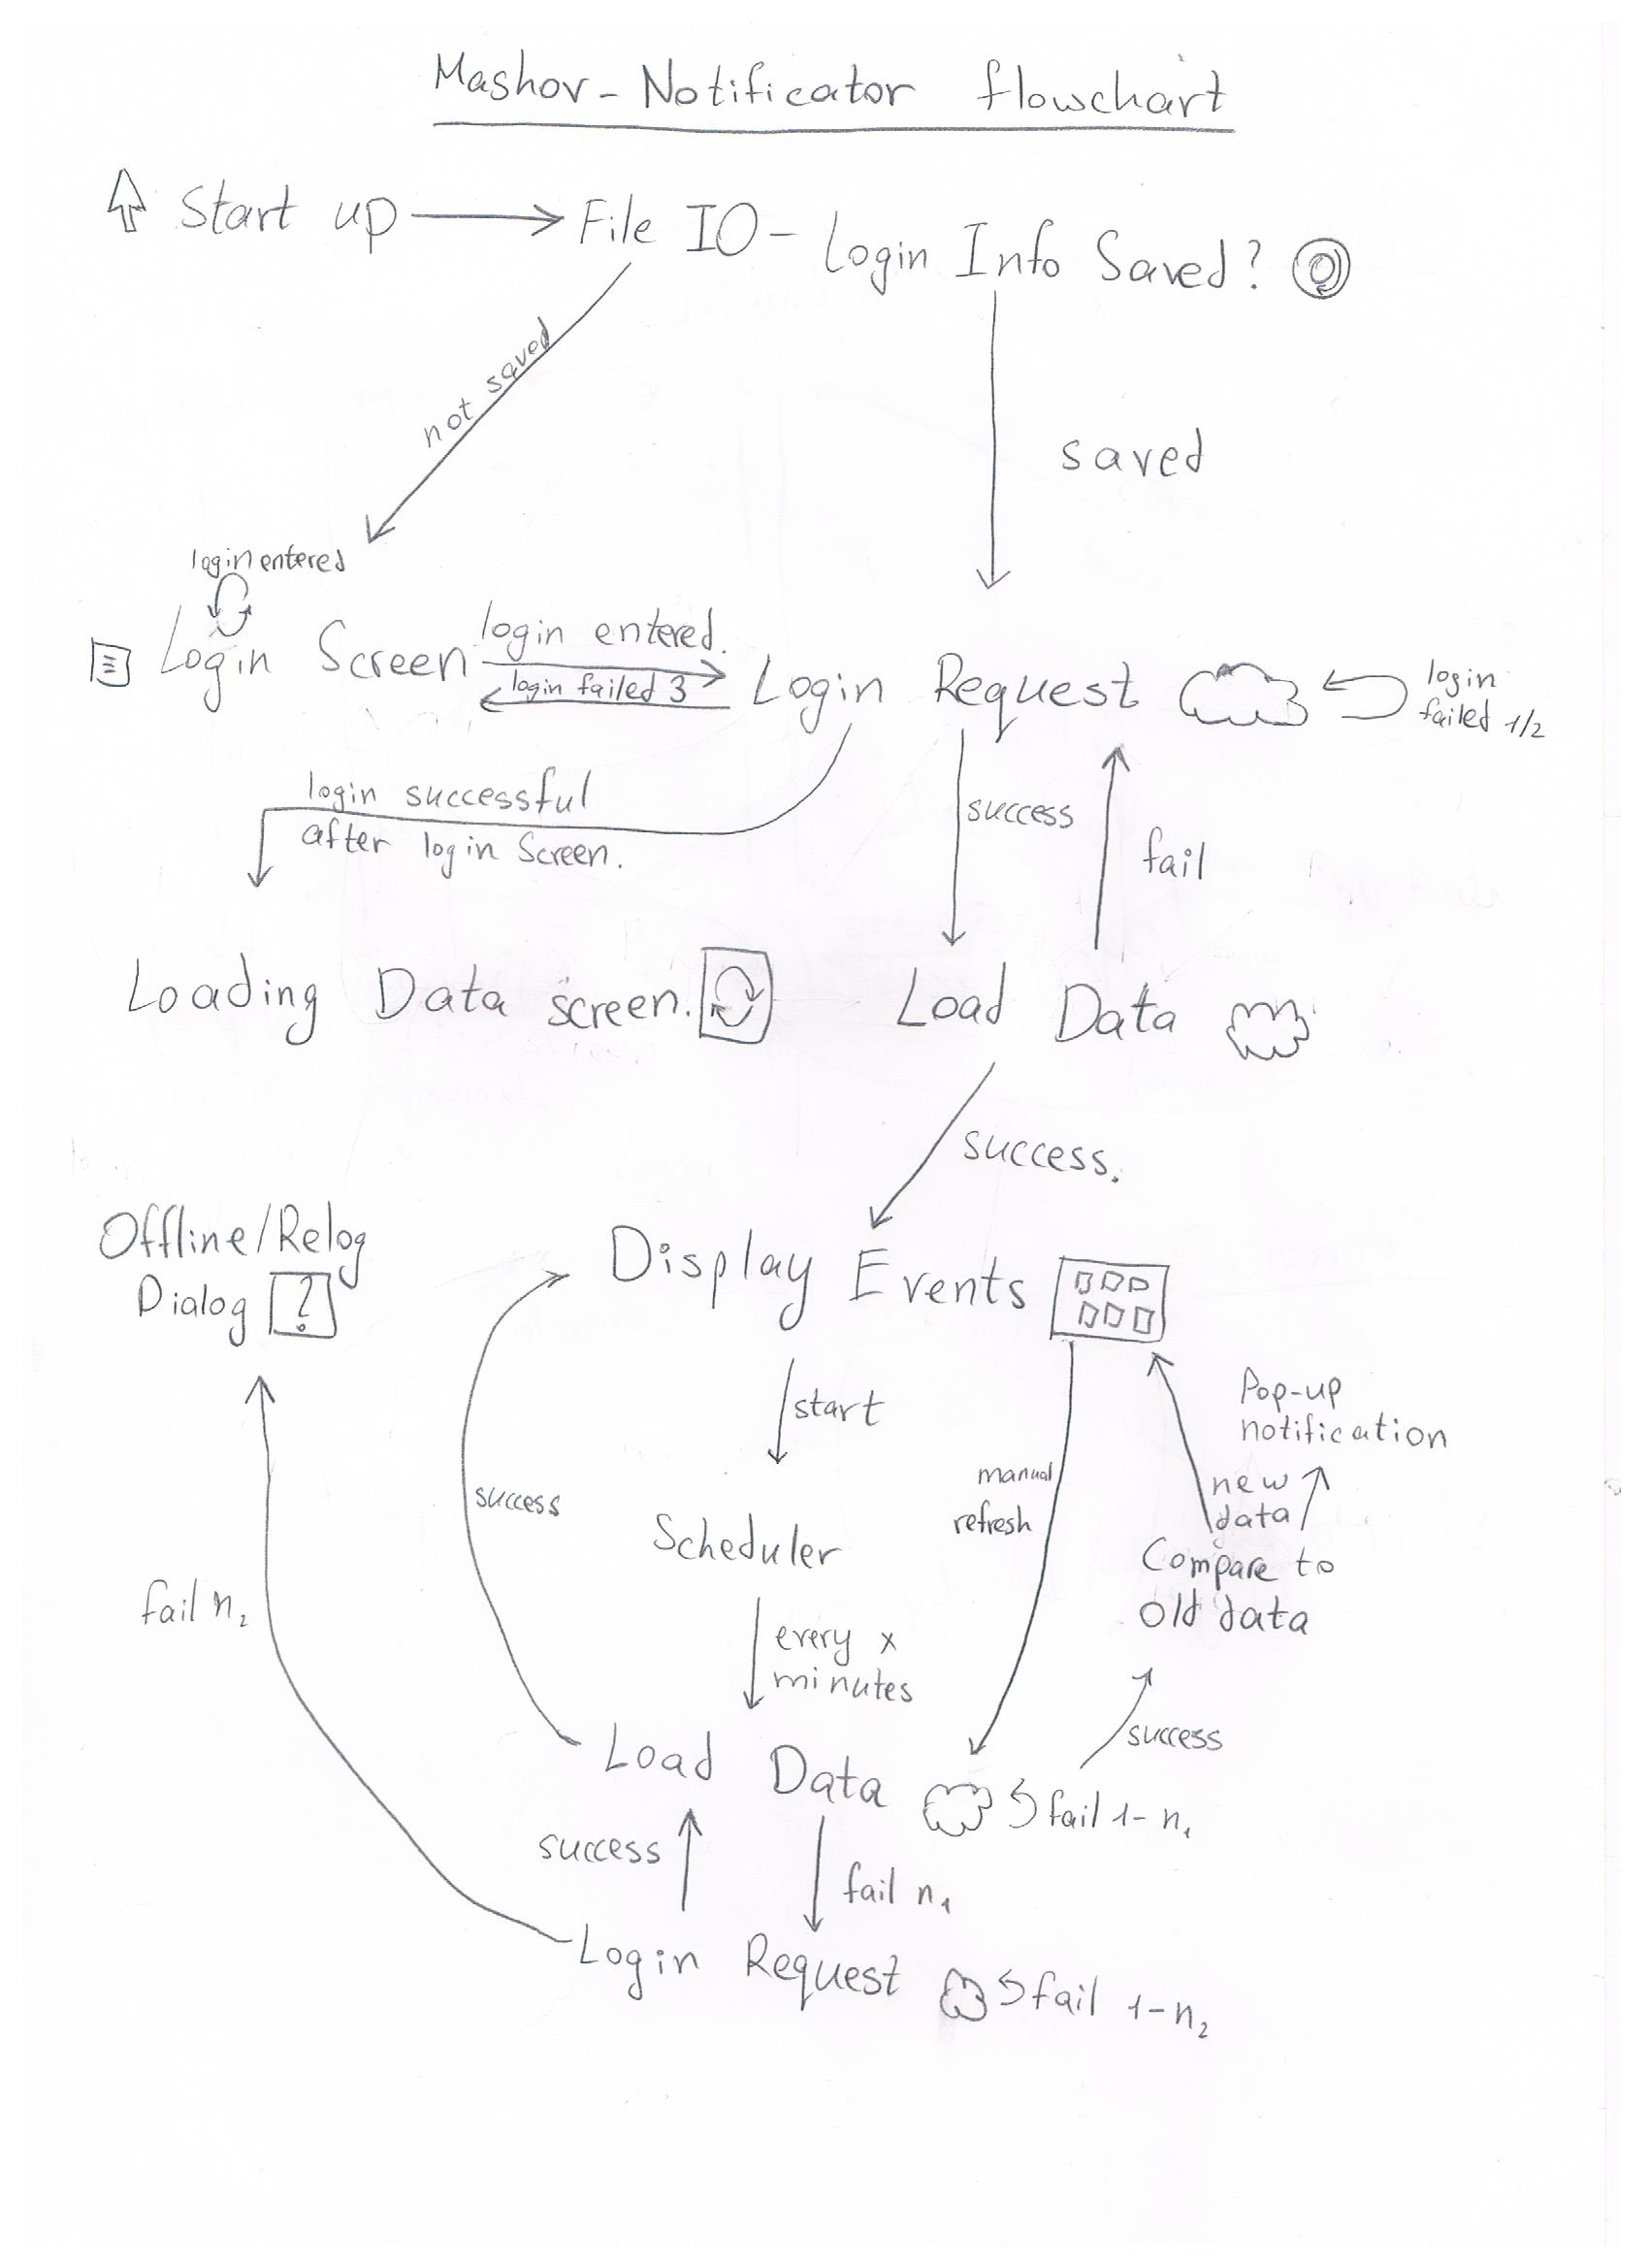 Mashov - Notificator flowchart
Start up
File IO - Login Info Saved?
not saved
saved
login entered
Login Screen
login entered.
login failed 3
Login Request
login
failed 1/2
login successful
after login Screen.
success
fail
Loading Data screen.
Load Data
success.
Offline/Relog
Dialog ?
Display Events
start
Pop-up
notification
manual
refresh
new
data
success
Scheduler
Compare to
old data
fail n₂
every x
minutes
success
Load Data
fail 1-n₁
success
fail n₁
Login Request
fail 1-n₂